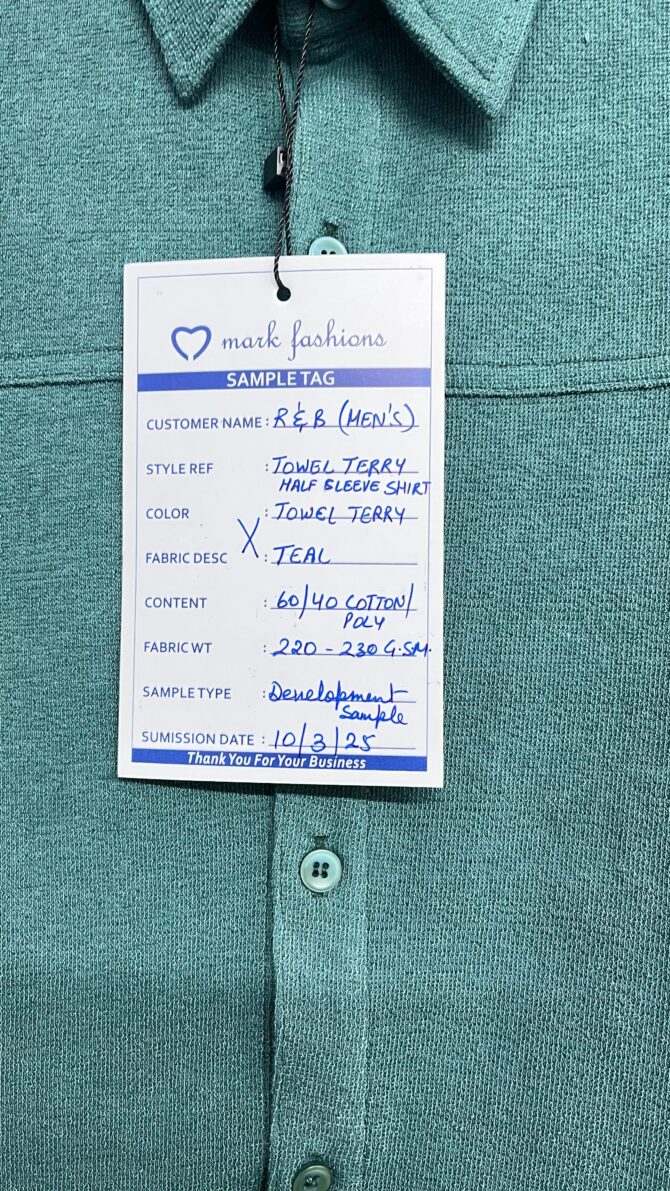 mark fashions
SAMPLE TAG
CUSTOMER NAME : R & B (MEN'S)
STYLE REF : TOWEL TERRY
HALF SLEEVE SHIRT
COLOR : TOWEL TERRY
X
FABRIC DESC : TEAL
CONTENT : 60/40 COTTON/
POLY
FABRIC WT : 220 - 230 G.S.M.
SAMPLE TYPE : Development
Sample
SUMISSION DATE : 10/3/25
Thank You For Your Business